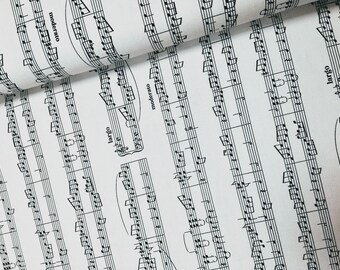 moderato
largo
moderato
largo